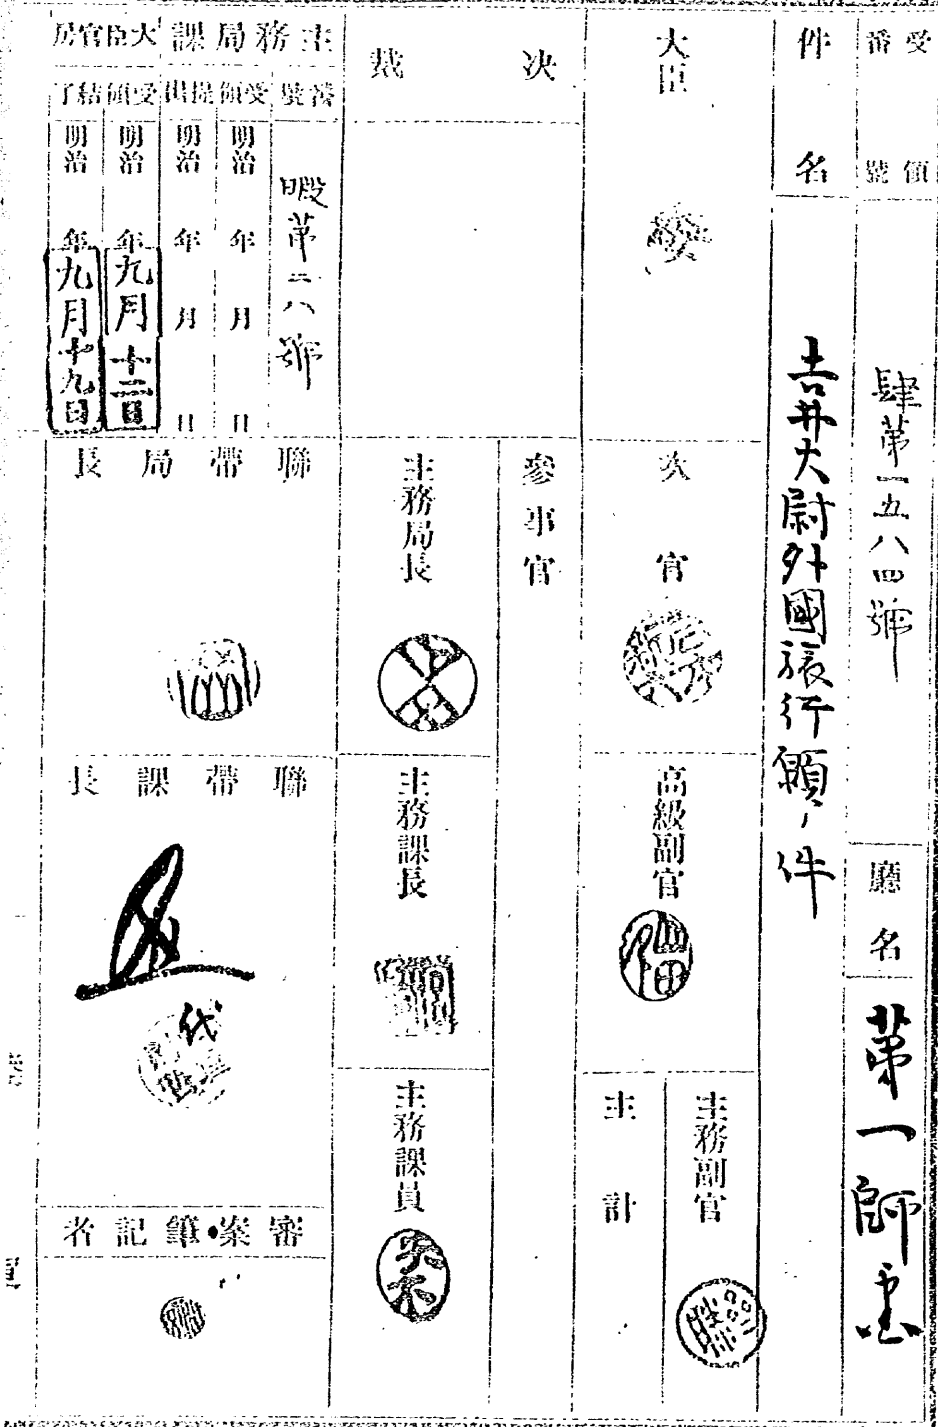 受領番號
肆第一五八四號
廳名
第一師團
件名
吉井大尉外國旅行願ノ件
大臣
次官
高級副官
主務副官
主計
決裁
參事官
主務局長
主務課長
主務課員
主務局課
番號
第二八號
受領
明治 年 月 日
提出
明治 年 月 日
大臣官房
受領
明治 年
九月十二日
結了
明治 年
九月十九日
聯帶局長
聯帶課長
代
審案・筆記者